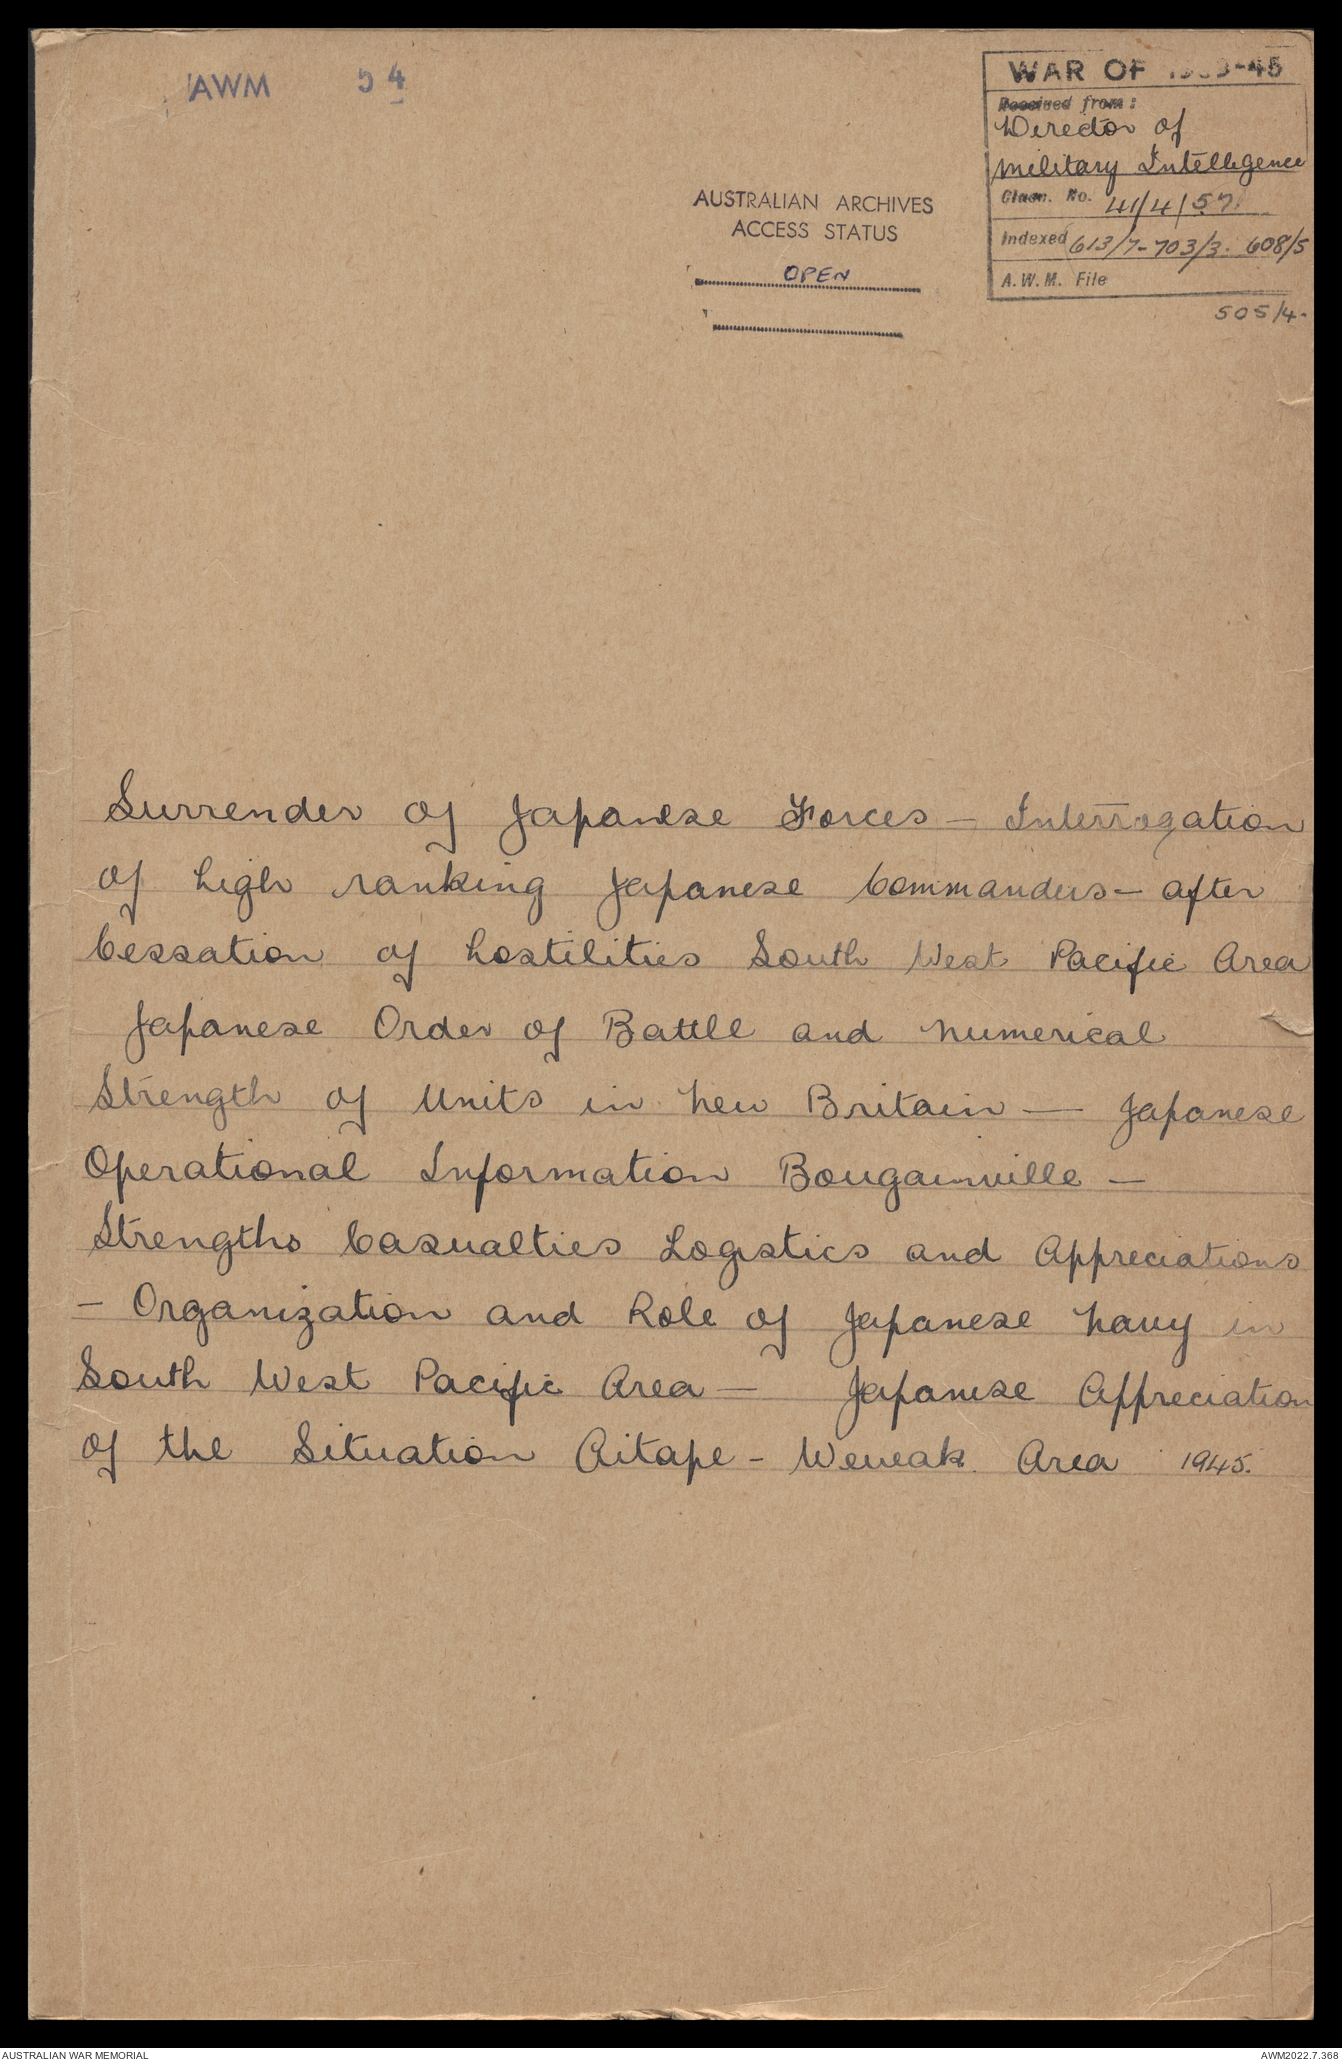 AWM 54
WAR OF 1939-45
Received from:
Director of
Military Intelligence
Classn. No. 41/4/57
Indexed 613/7-703/3. 608/5
A.W.M. File
505/4.
AUSTRALIAN ARCHIVES
ACCESS STATUS
OPEN
Surrender of Japanese Forces - Interrogation
of high ranking Japanese Commanders - after
Cessation of hostilities South West Pacific Area
Japanese Order of Battle and numerical
Strength of Units in New Britain - Japanese
Operational Information Bougainville -
Strengths Casualties Logistics and Appreciations
- Organization and Role of Japanese Navy in
South West Pacific Area - Japanese Appreciation
of the Situation Aitape - Wewak Area 1945.
AUSTRALIAN WAR MEMORIAL
AWM2022.7.368